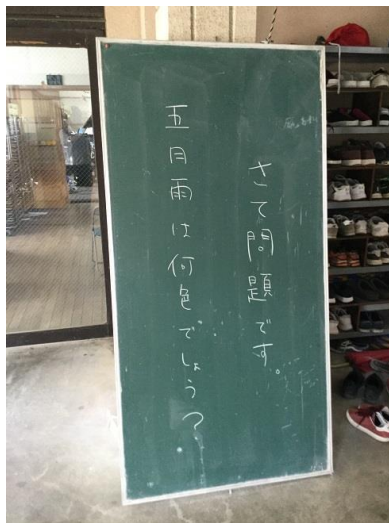 さて問題です。
五月雨は何色でしょう？